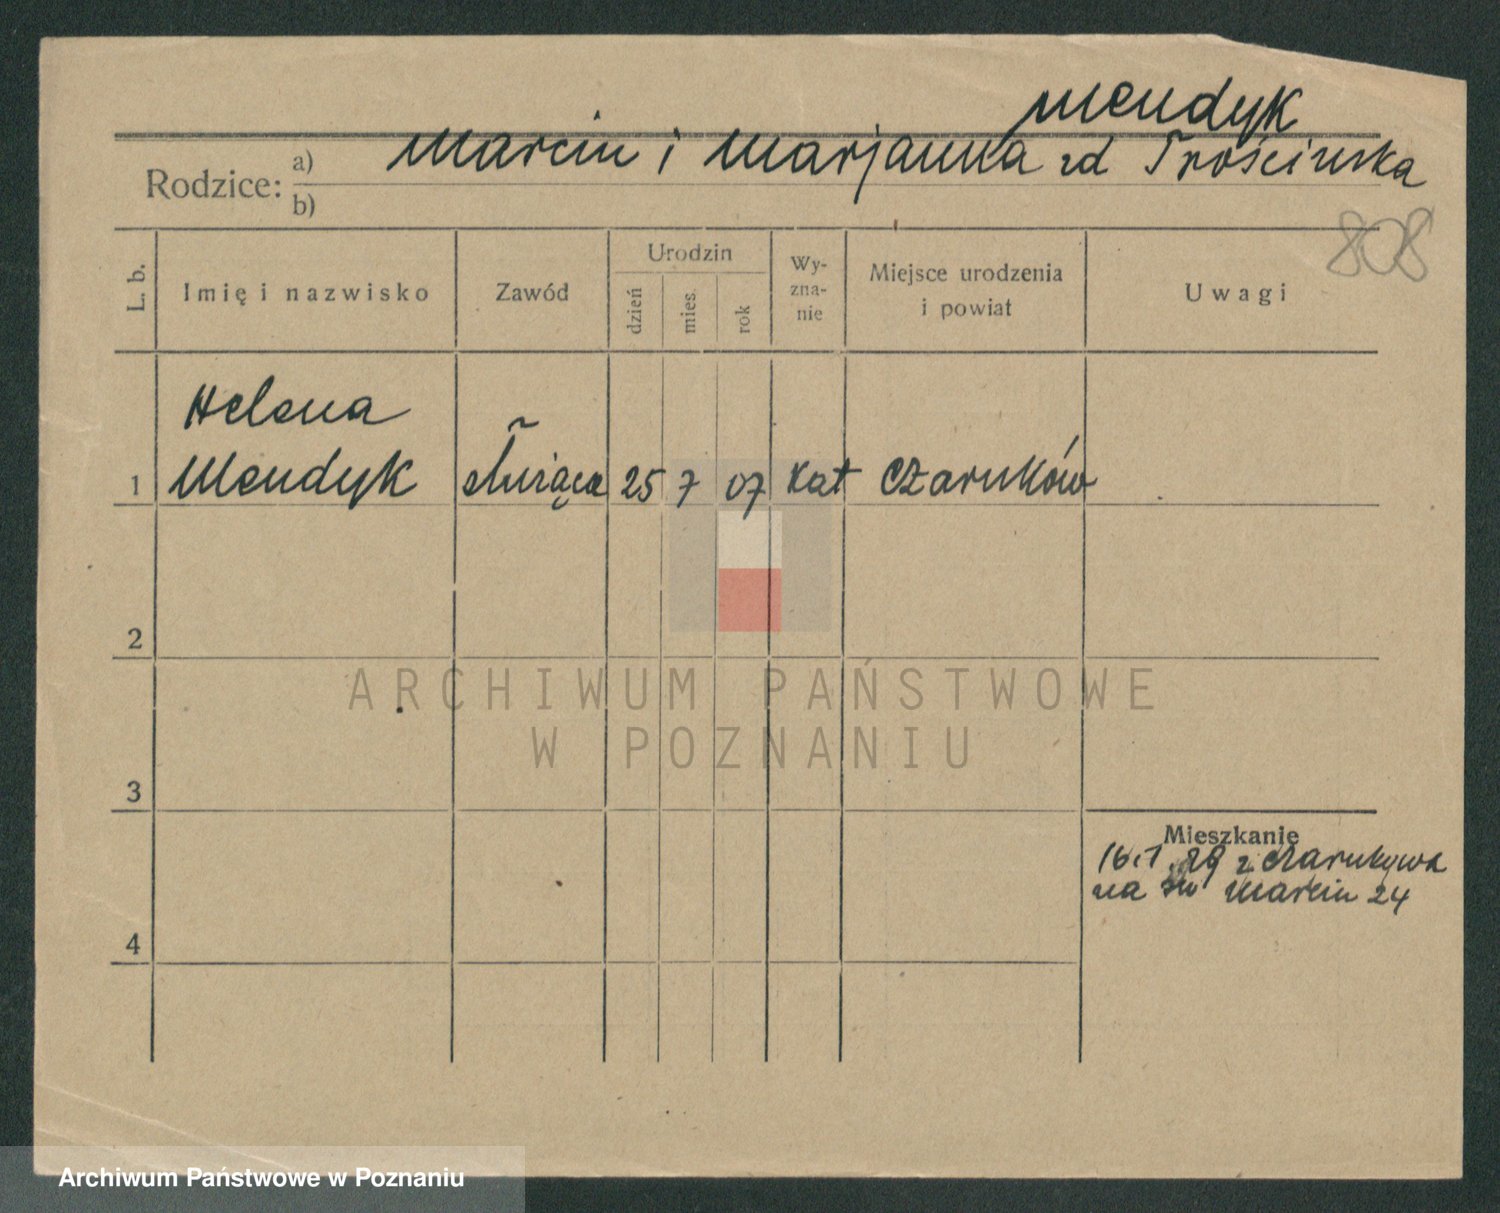 Mendyk
Marcin i Marjanna zd Prościnska
Rodzice: a)
b)
808
L. b.
Imię i nazwisko
Zawód
Urodzin
dzień
mies.
rok
Wy-
zna-
nie
Miejsce urodzenia
i powiat
Uwagi
Helena
1 Mendyk służąca 25 7 07 kat Czarnków
2
ARCHIWUM PAŃSTWOWE
W POZNANIU
3
Mieszkanie
16.1. 29 z Czarnkowa
na św Marcin 24
4
Archiwum Państwowe w Poznaniu